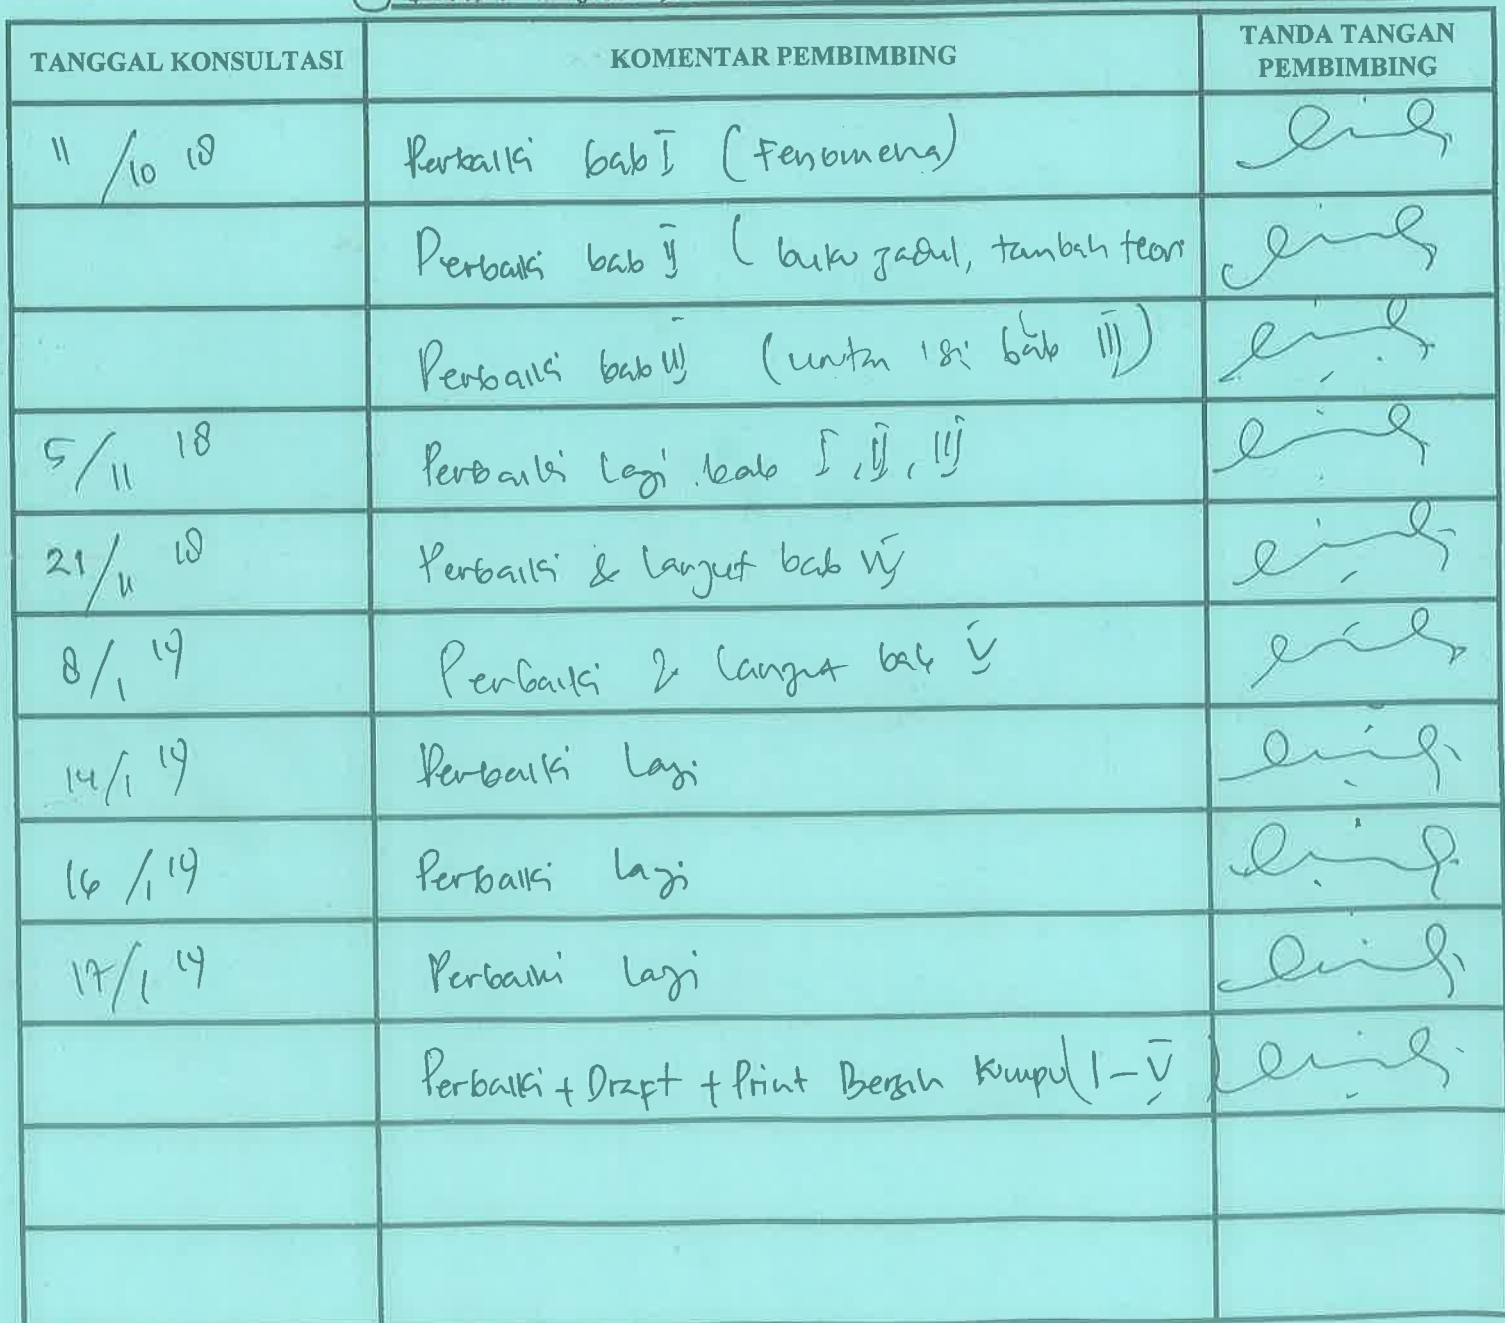 TANGGAL KONSULTASI KOMENTAR PEMBIMBING TANDA TANGAN PEMBIMBING
11/10 18 Perbaiki bab I (Fenomena)
Perbaiki bab II (buku jadul, tambah teori
Perbaiki bab III (untk isi bab III)
5/11 18 Perbaiki lagi bab I, II, III
21/11 18 Perbaiki & lanjut bab IV
8/1 19 Perbaiki & lanjut bab V
14/1 19 Perbaiki lagi
16/1 19 Perbaiki lagi
17/1 19 Perbaiki lagi
Perbaiki + Draft + Print Bersih Kumpul I - V